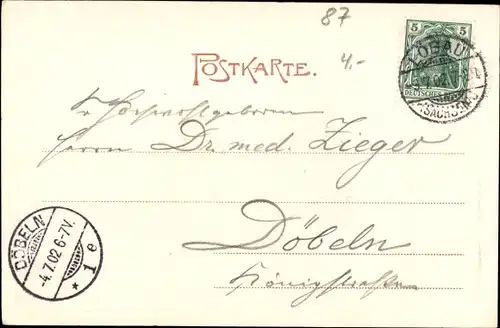 87
4,-
5 5
DEUTSCHES
LÖBAU
(SACHSEN)
POSTKARTE.
Sr. Hochwohlgeboren
Herrn Dr. med. Zieger
Döbeln
Königstraße
DÖBELN
-4.7.02 6-7V.
* 1 e